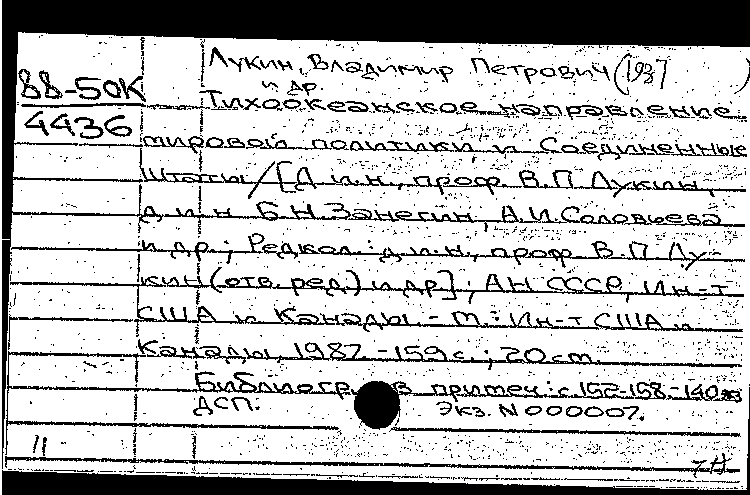 Лукин, Владимир Петрович (1937 )
и др.
88-50К
4436
Тихоокеанское направление
мировой политики и Соединенные
Штаты / [Д.и.н., проф. В.П. Лукин,
д.и.н. Б.Н. Занегин, А.И. Соловьева
и др.; Редкол.: д.и.н., проф. В.П. Лу-
кин (отв. ред.) и др.]; АН СССР, Ин-т
США и Канады. - М.: Ин-т США и
Канады, 1987. - 159 с.; 20 см.
Библиогр. в примеч.: с. 152-158. - 140 экз
ДСП. Экз. N 000007.
11